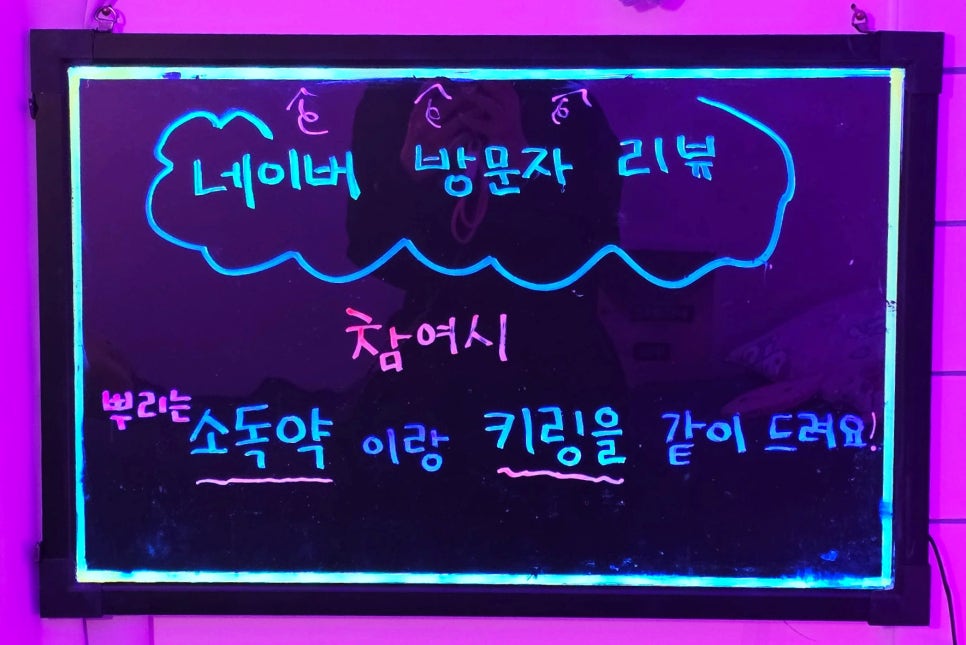 네이버 방문자 리뷰
참여시
뿌리는 소독약 이랑 키링을 같이 드려요!